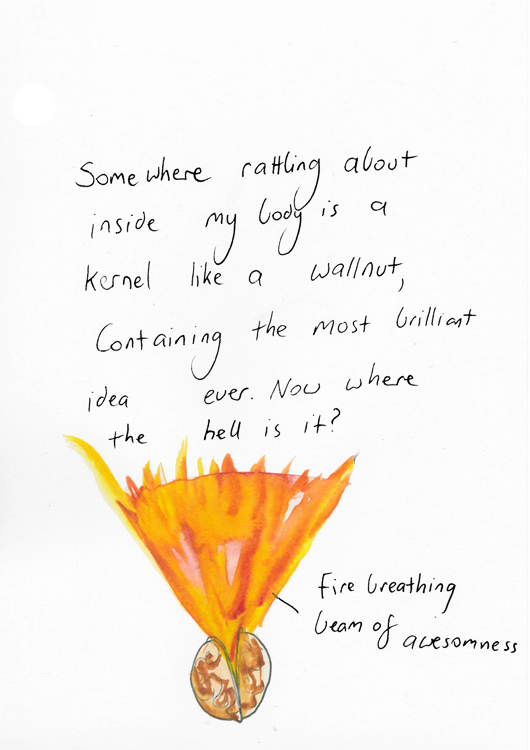 Somewhere rattling about
inside my body is a
kernel like a wallnut,
Containing the most brilliant
idea ever. Now where
the hell is it?
Fire breathing
beam of awesomness